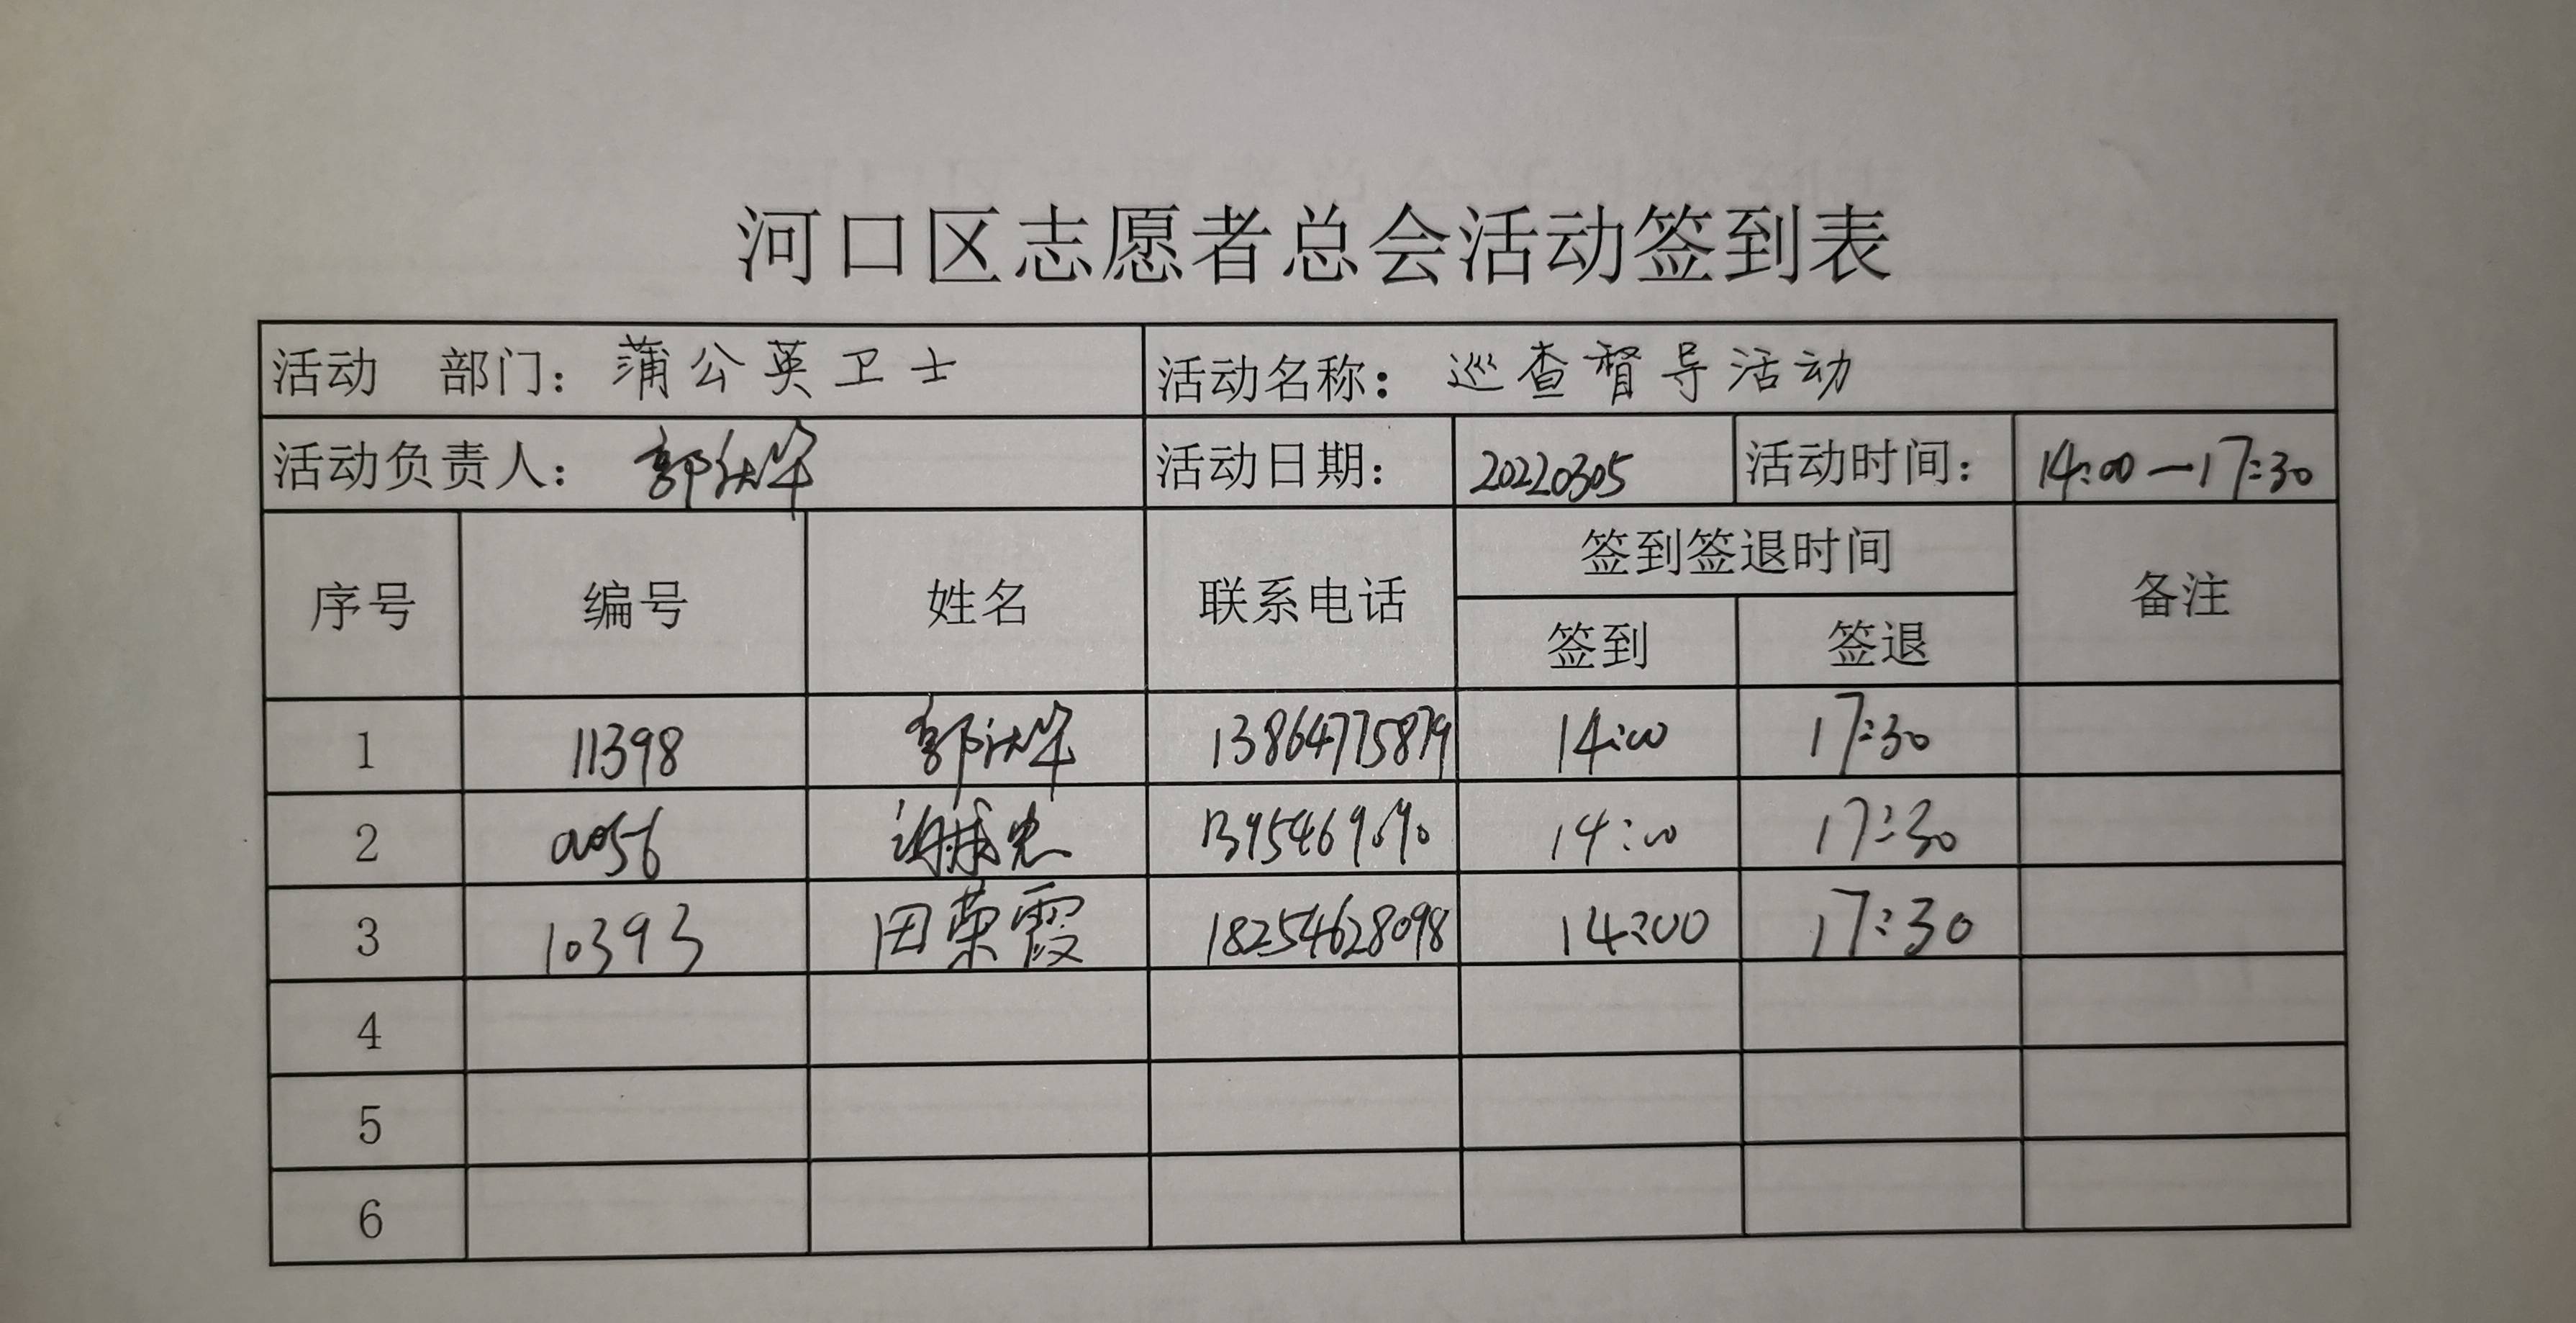 河口区志愿者总会活动签到表
活动 部门： 蒲公英卫士 活动名称： 巡查督导活动
活动负责人： 郭 活动日期： 20220305 活动时间： 14:00—17:30
序号 编号 姓名 联系电话 签到签退时间 备注
签到 签退
1 11398 郭 13864775879 14:00 17:30
2 14:00 17:30
3 10393 田荣霞 18254628098 14:00 17:30
4
5
6